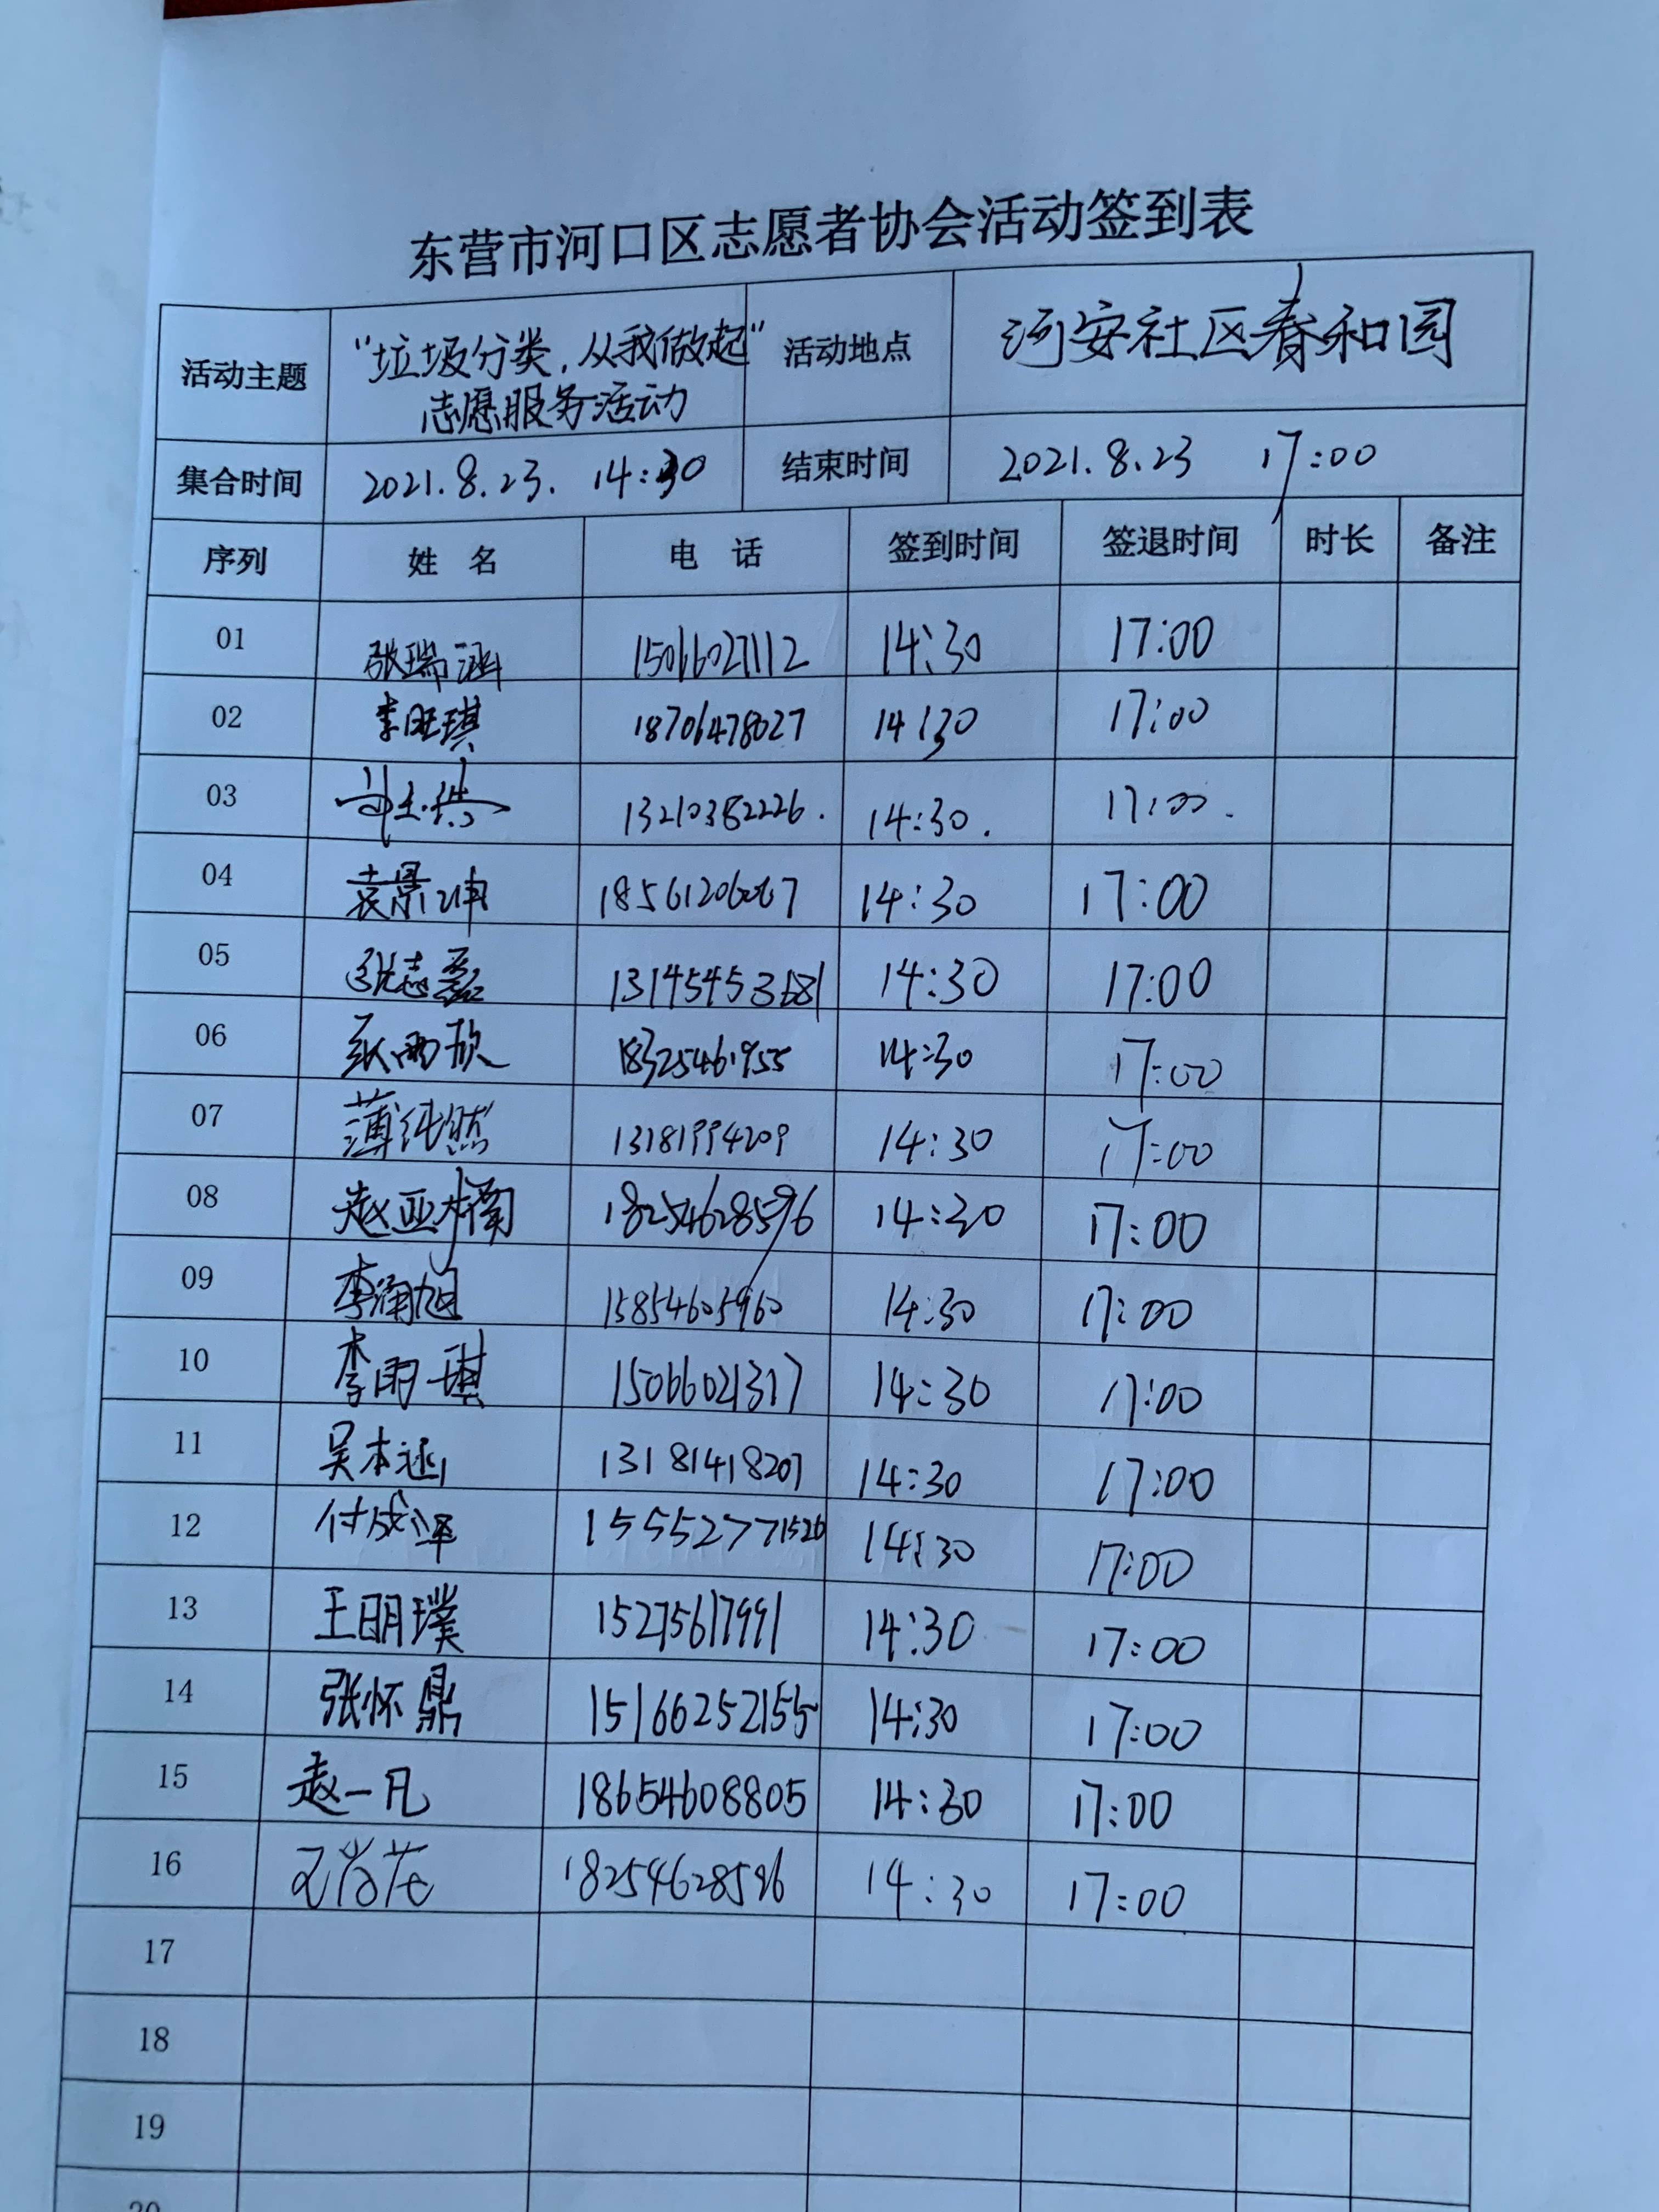 东营市河口区志愿者协会活动签到表
活动主题 "垃圾分类,从我做起" 志愿服务活动 活动地点 河安社区春和园
集合时间 2021.8.23. 14:30 结束时间 2021.8.23 17:00
序列 姓名 电话 签到时间 签退时间 时长 备注
01 张瑞涵 15066027112 14:30 17:00
02 李旺琪 18706478027 14:30 17:00
03 13210382226. 14:30. 17:00.
04 袁景坤 14:30 17:00
05 张志磊 14:30 17:00
06 张雨欣 18325461955 14:30 17:00
07 薄纯然 13181994209 14:30 17:00
08 赵亚楠 18254628596 14:30 17:00
09 李涌旭 15854605960 14:30 17:00
10 李雨琪 15066021317 14:30 17:00
11 吴本涵 13181418207 14:30 17:00
12 付成泽 14:30 17:00
13 王明璞 15275617991 14:30 17:00
14 张怀鼎 15166252155 14:30 17:00
15 赵一凡 18654608805 14:30 17:00
16 18254628596 14:30 17:00
17
18
19
20